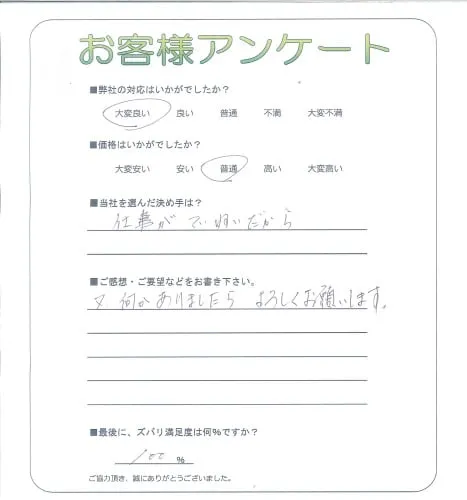 お客様アンケート
■弊社の対応はいかがでしたか?
大変良い 良い 普通 不満 大変不満
■価格はいかがでしたか?
大変安い 安い 普通 高い 大変高い
■当社を選んだ決め手は?
仕事がてい寧いだから
■ご感想・ご要望などをお書き下さい。
又何かありましたらよろしくお願いします。
■最後に、ズバリ満足度は何%ですか?
100 %
ご協力頂き、誠にありがとうございました。